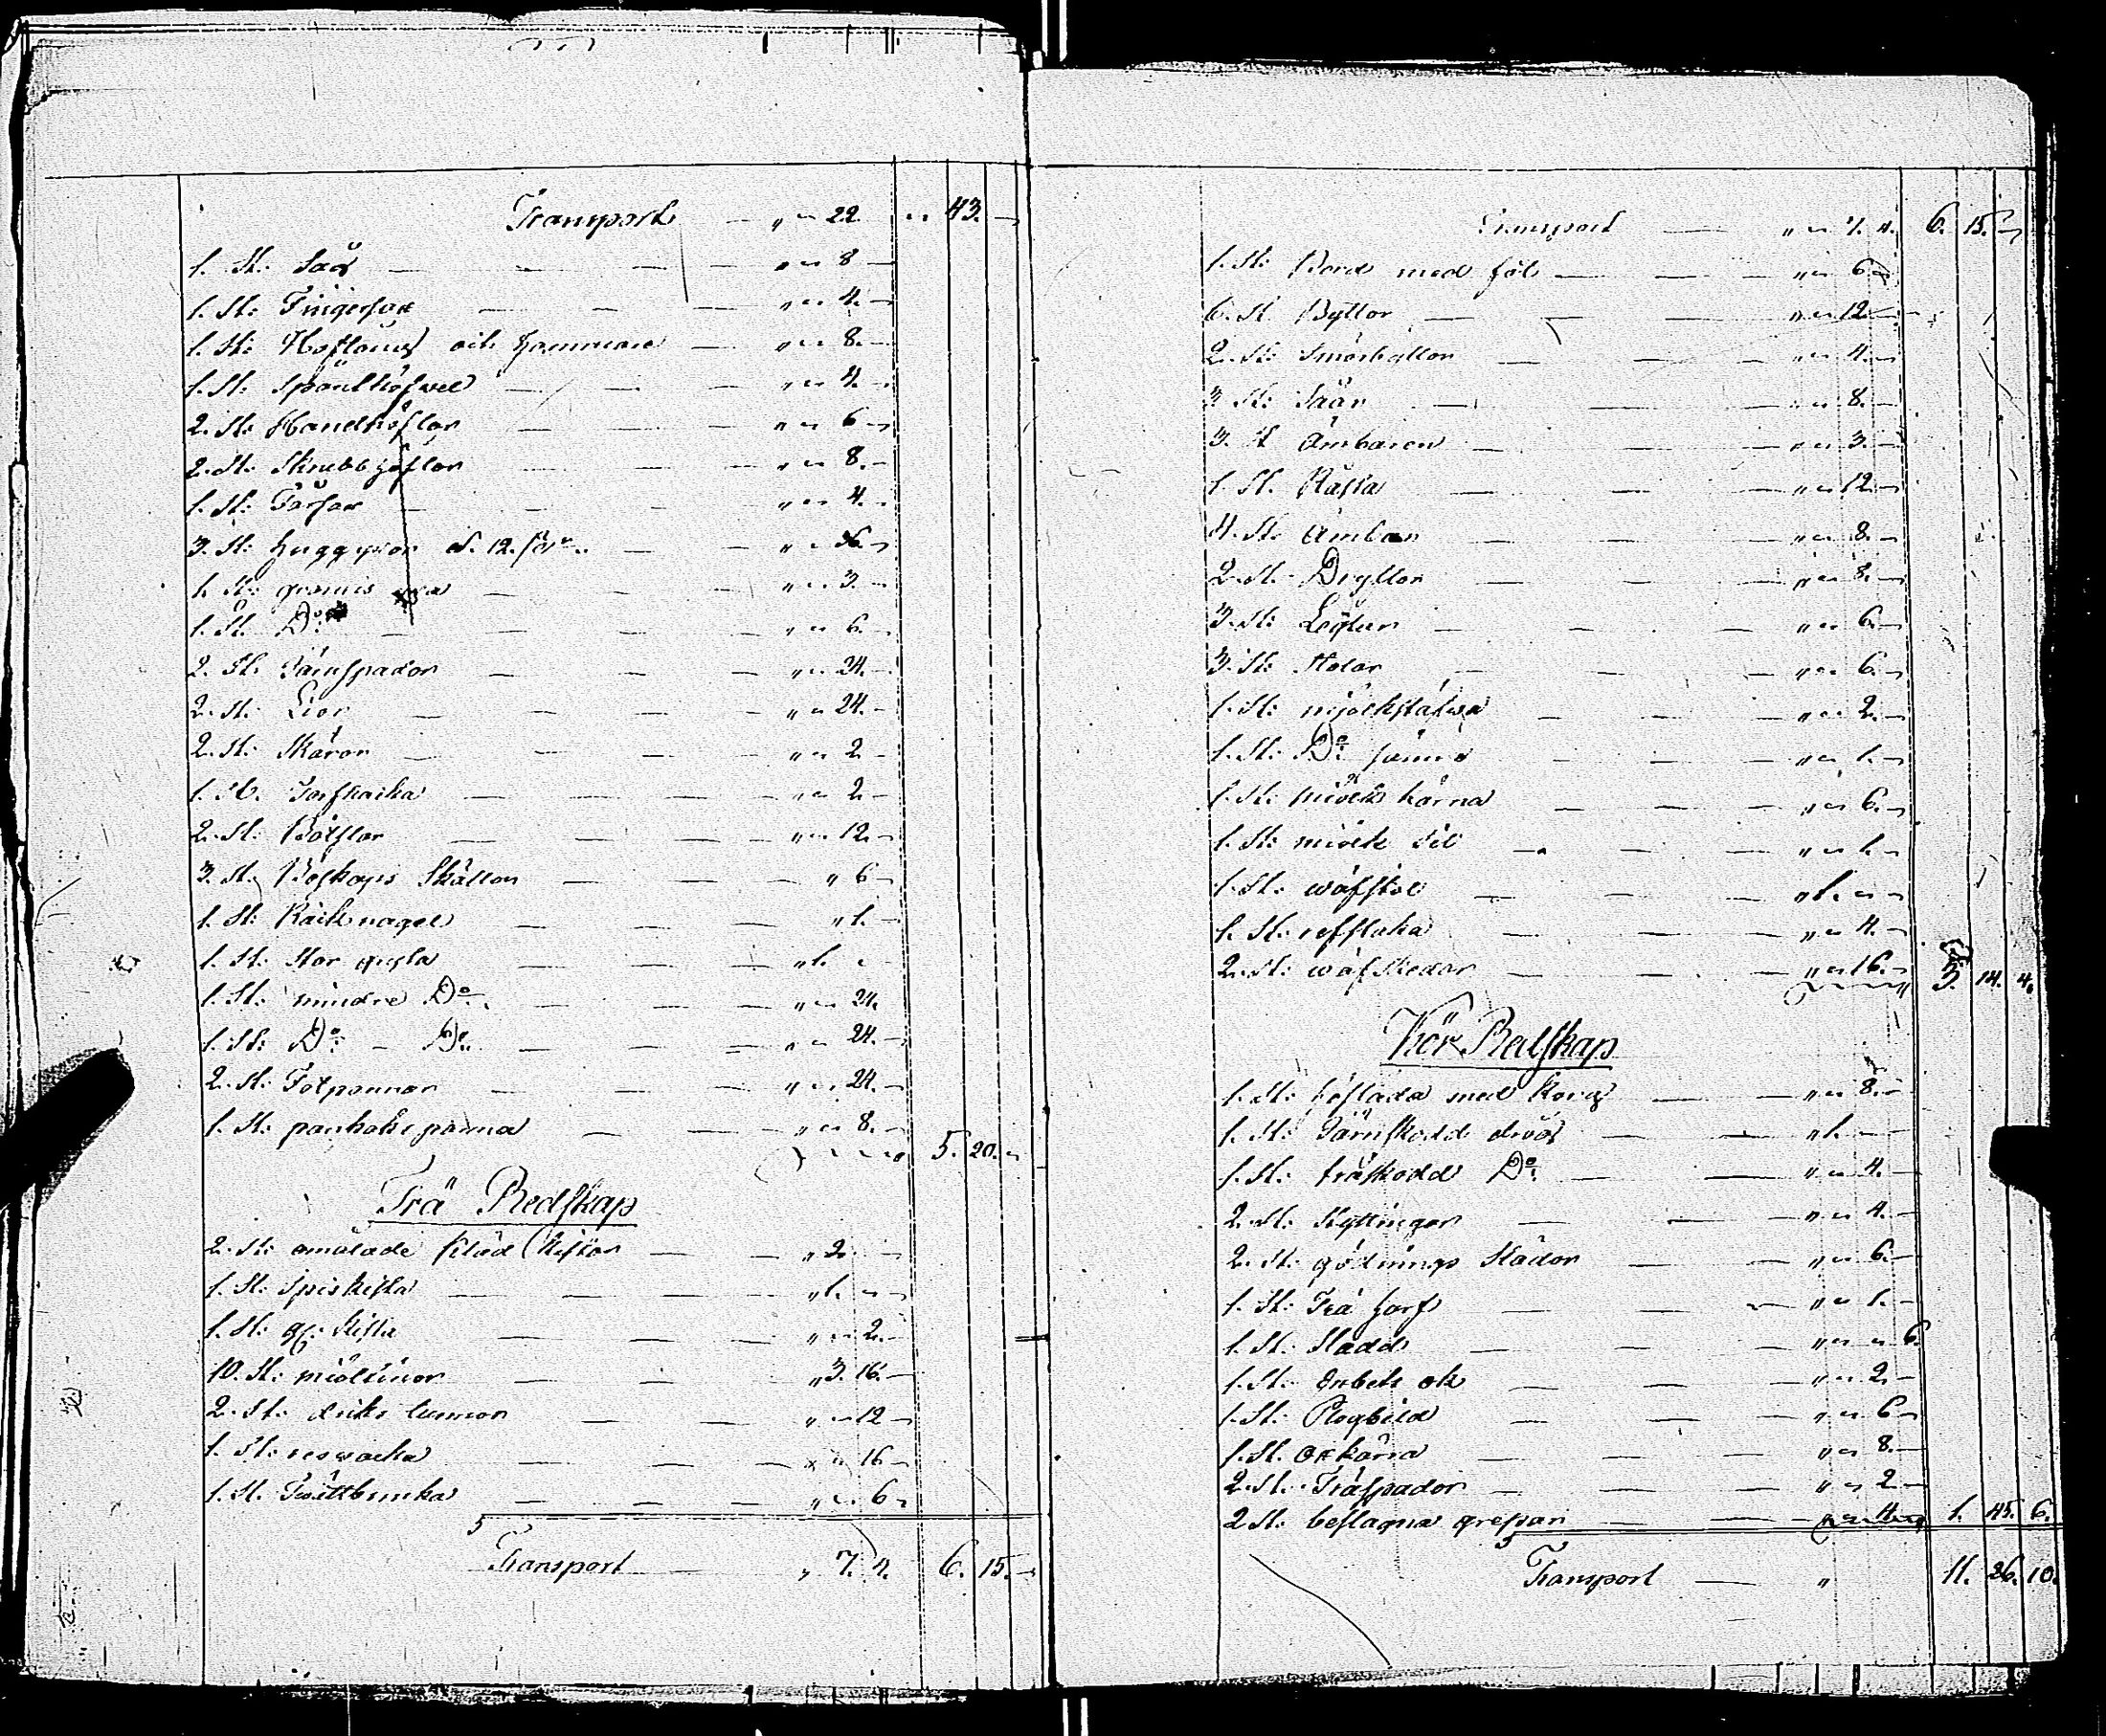 Transport — „ „ 22. „ „ 43. —
1. St: Såg — „ „ 8 —
1. St: Fingersax — „ „ 4. —
1. St: Hoftång och hammare — „ „ 8. —
1. St: Spånthöfvel — „ „ 4. —
2. St: Handhöflar — „ „ 6 —
2. St: Skrubbhöflar — „ „ 8. —
1. St: Fårsax — „ „ 4. —
3. St: huggyxor — „ „ 36. —
1. St: — „ „ 3. —
1. St. Do: — „ „ 6. —
2. St. Järnspador — „ „ 24. —
2. St: Lior — „ „ 24. —
2. St: Skäror — „ „ 2 —
1. St. Torfhacka — „ „ 2 —
2. St: — „ „ 12. —
3. St. Boskaps Skällor — „ 6 —
1. St: — „ 1. —
1. St: Stor gryta — „ 1. „
1. St: mindre Do. — „ „ 24.
1. St: Do: — Do. — „ „ 24. —
2. St: Fotpannor — „ „ 24. —
1. St: pankaks panna — „ „ 8. —
5. 20. „
Trä Redskap
2. St: omålade kläd Kistor — „ 2. —
1. St: Spiskista — „ 1. „
1. St: Kista — „ „ 2. —
10. St: miöltinor — „ 3. 16. —
2. St. driks kannor — „ „ 12 —
1. St: — „ „ 16 —
1. St. Twättbunka — „ „ 6 „
Transport — „ 7. 4. 6. 15. —
Transport — „ „ 7. 4. 6. 15. „
1. St: Bord med fot — „ „ 6 „
6. St Byttor — „ „ 12. —
2. St: Smörbyttor — „ „ 4. —
3 St: Såar — „ „ 8. —
3. St Ämbaren — „ „ 3. —
1 St. — „ „ 12. —
4. St. Ämbar — „ „ 8. —
2. St. Dryttor — „ „ 8. —
3. St: Läglar — „ „ 6. —
3. St: Stolar — „ „ 6. —
1. St: mjölkstäfva — „ „ 2. —
1. St: Do: — „ „ 1. —
1. St: miölk kärna — „ „ 6. —
1. St: miölk Sil — „ „ 1. —
1. St: wäfstol — „ 1. „ —
1. St: — „ „ 4. —
2. St: wäfskedar — „ „ 16. — 3. 14. 4.
Kör Redskap
1. St: höslada med Korg — „ „ 8. —
1. St: Järnskodd drög — „ 1. —
1. St: träskodd Do: — „ „ 4. —
2. St. Kyttingar — „ „ 4. —
2. St. gödnings Slädor — „ „ 6. —
1. St: Trä harf — „ „ 1. —
1. St. Sladd — „ „ „ 6
1. St. Enbets ok — „ „ 2 —
1. St. Plogbild — „ „ 6 —
1. St. oxkärra — „ „ 8. —
2. St. Träspador — „ „ 2 —
2 St: beslagna grepar — „ „ 4. — 1. 45. 6.
Transport — „ 11. 26. 10.